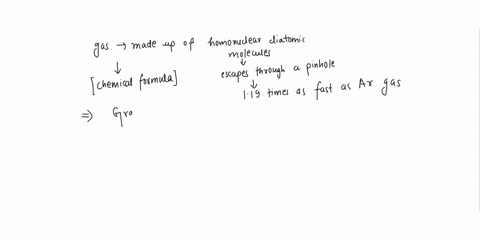 gas → made up of homonuclear diatomic
molecules
↓
[chemical formula]
↓
escapes through a pinhole
↓
1.19 times as fast as Ar gas
⇒ Gro